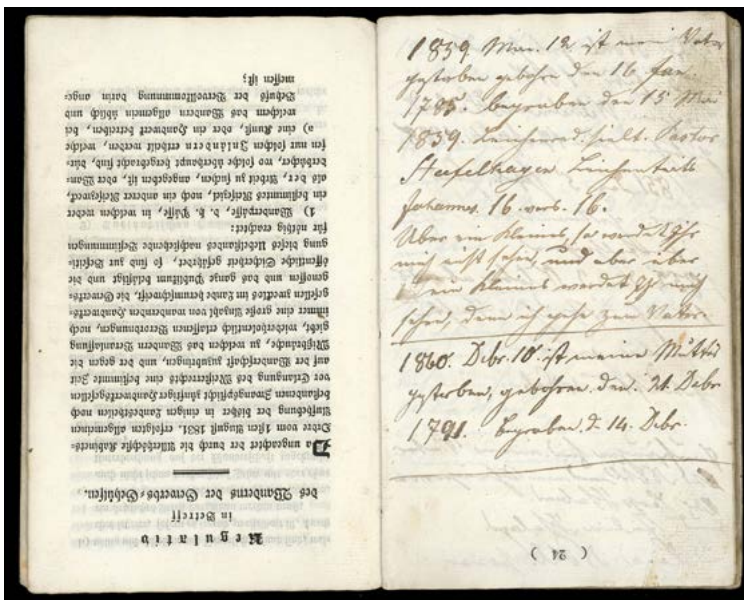 Regulativ
in Betreff
des Wanderns der Gewerbs-Gehülfen.
Da ungeachtet der durch die Allerhöchste Kabinets-
Ordre vom 1sten August 1831. erfolgten allgemeinen
Aufhebung der bisher in einigen Landestheilen noch
bestandenen Zwangspflicht zünftiger Handwerksgesellen
vor Erlangung des Meisterrechts eine bestimmte Zeit
auf der Wanderschaft zuzubringen, und der gegen die
Mißbräuche, zu welchen das Wandern Veranlassung
giebt, wiederholentlich erlassenen Verordnungen, noch
immer eine große Anzahl von wandernden Handwerks-
gesellen zwecklos im Lande herumschweift, die Gewerbs-
genossen und das ganze Publikum belästigt und die
öffentliche Sicherheit gefährdet, so sind zur Beseiti-
gung dieses Uebelstandes nachstehende Bestimmungen
für nöthig erachtet:
1) Wanderpässe, d. h. Pässe, in welchen weder
ein bestimmtes Reiseziel, noch ein anderer Reisezweck,
als der, Arbeit zu suchen, angegeben ist, oder Wan-
derbücher, wo solche überhaupt hergebracht sind, dür-
fen nur solchen Inländern ertheilt werden, welche
a) eine Kunst, oder ein Handwerk betreiben, bei
welchem das Wandern allgemein üblich und
Behufs der Vervollkommnung darin ange-
messen ist;
1859. Mai. 12. ist mein Vater
gestorben gebohren den 16 Jan.
1785. begraben den 15 Mai
1859. Leichenred. hielt. Pastor
Stafelhagen Leichentext
Johannes. 16. vers. 16.
Über ein Kleines, so werdet Ihr
mich nicht sehen, und aber über
ein Kleines werdet Ihr mich
sehen, denn ich gehe zum Vater.
1860. Debr. 10. ist meine Mutter
gestorben, gebohren den. 21. Debr
1791. begraben. d. 14. Debr.
( 24 )